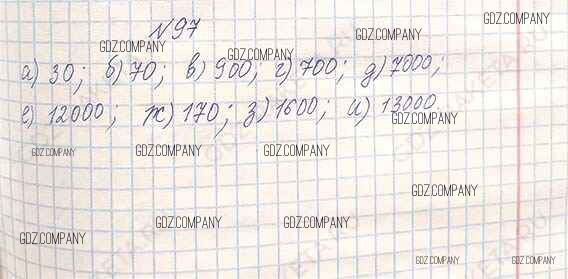 N97
а) 30; б) 70; в) 900; г) 700; д) 7000;
е) 12000; ж) 170; з) 1600; и) 13000.
GDZ.COMPANY
GDZ.COMPANY
GDZ.COMPANY
GDZ.COMPANY
GDZ.COMPANY
GDZ.COMPANY
GDZ.COMPANY
GDZ.COMPANY
GDZ.COMPANY
GDZ.COMPANY
GDZ.COMPANY
GDZ.COMPANY
GDZ.COMPANY
GDZ.COMPANY